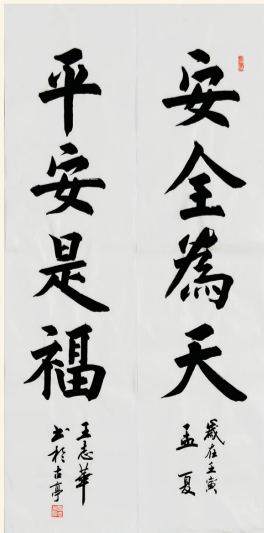 安全為天
歲在壬寅
孟夏
平安是福
王志華
书於古亭